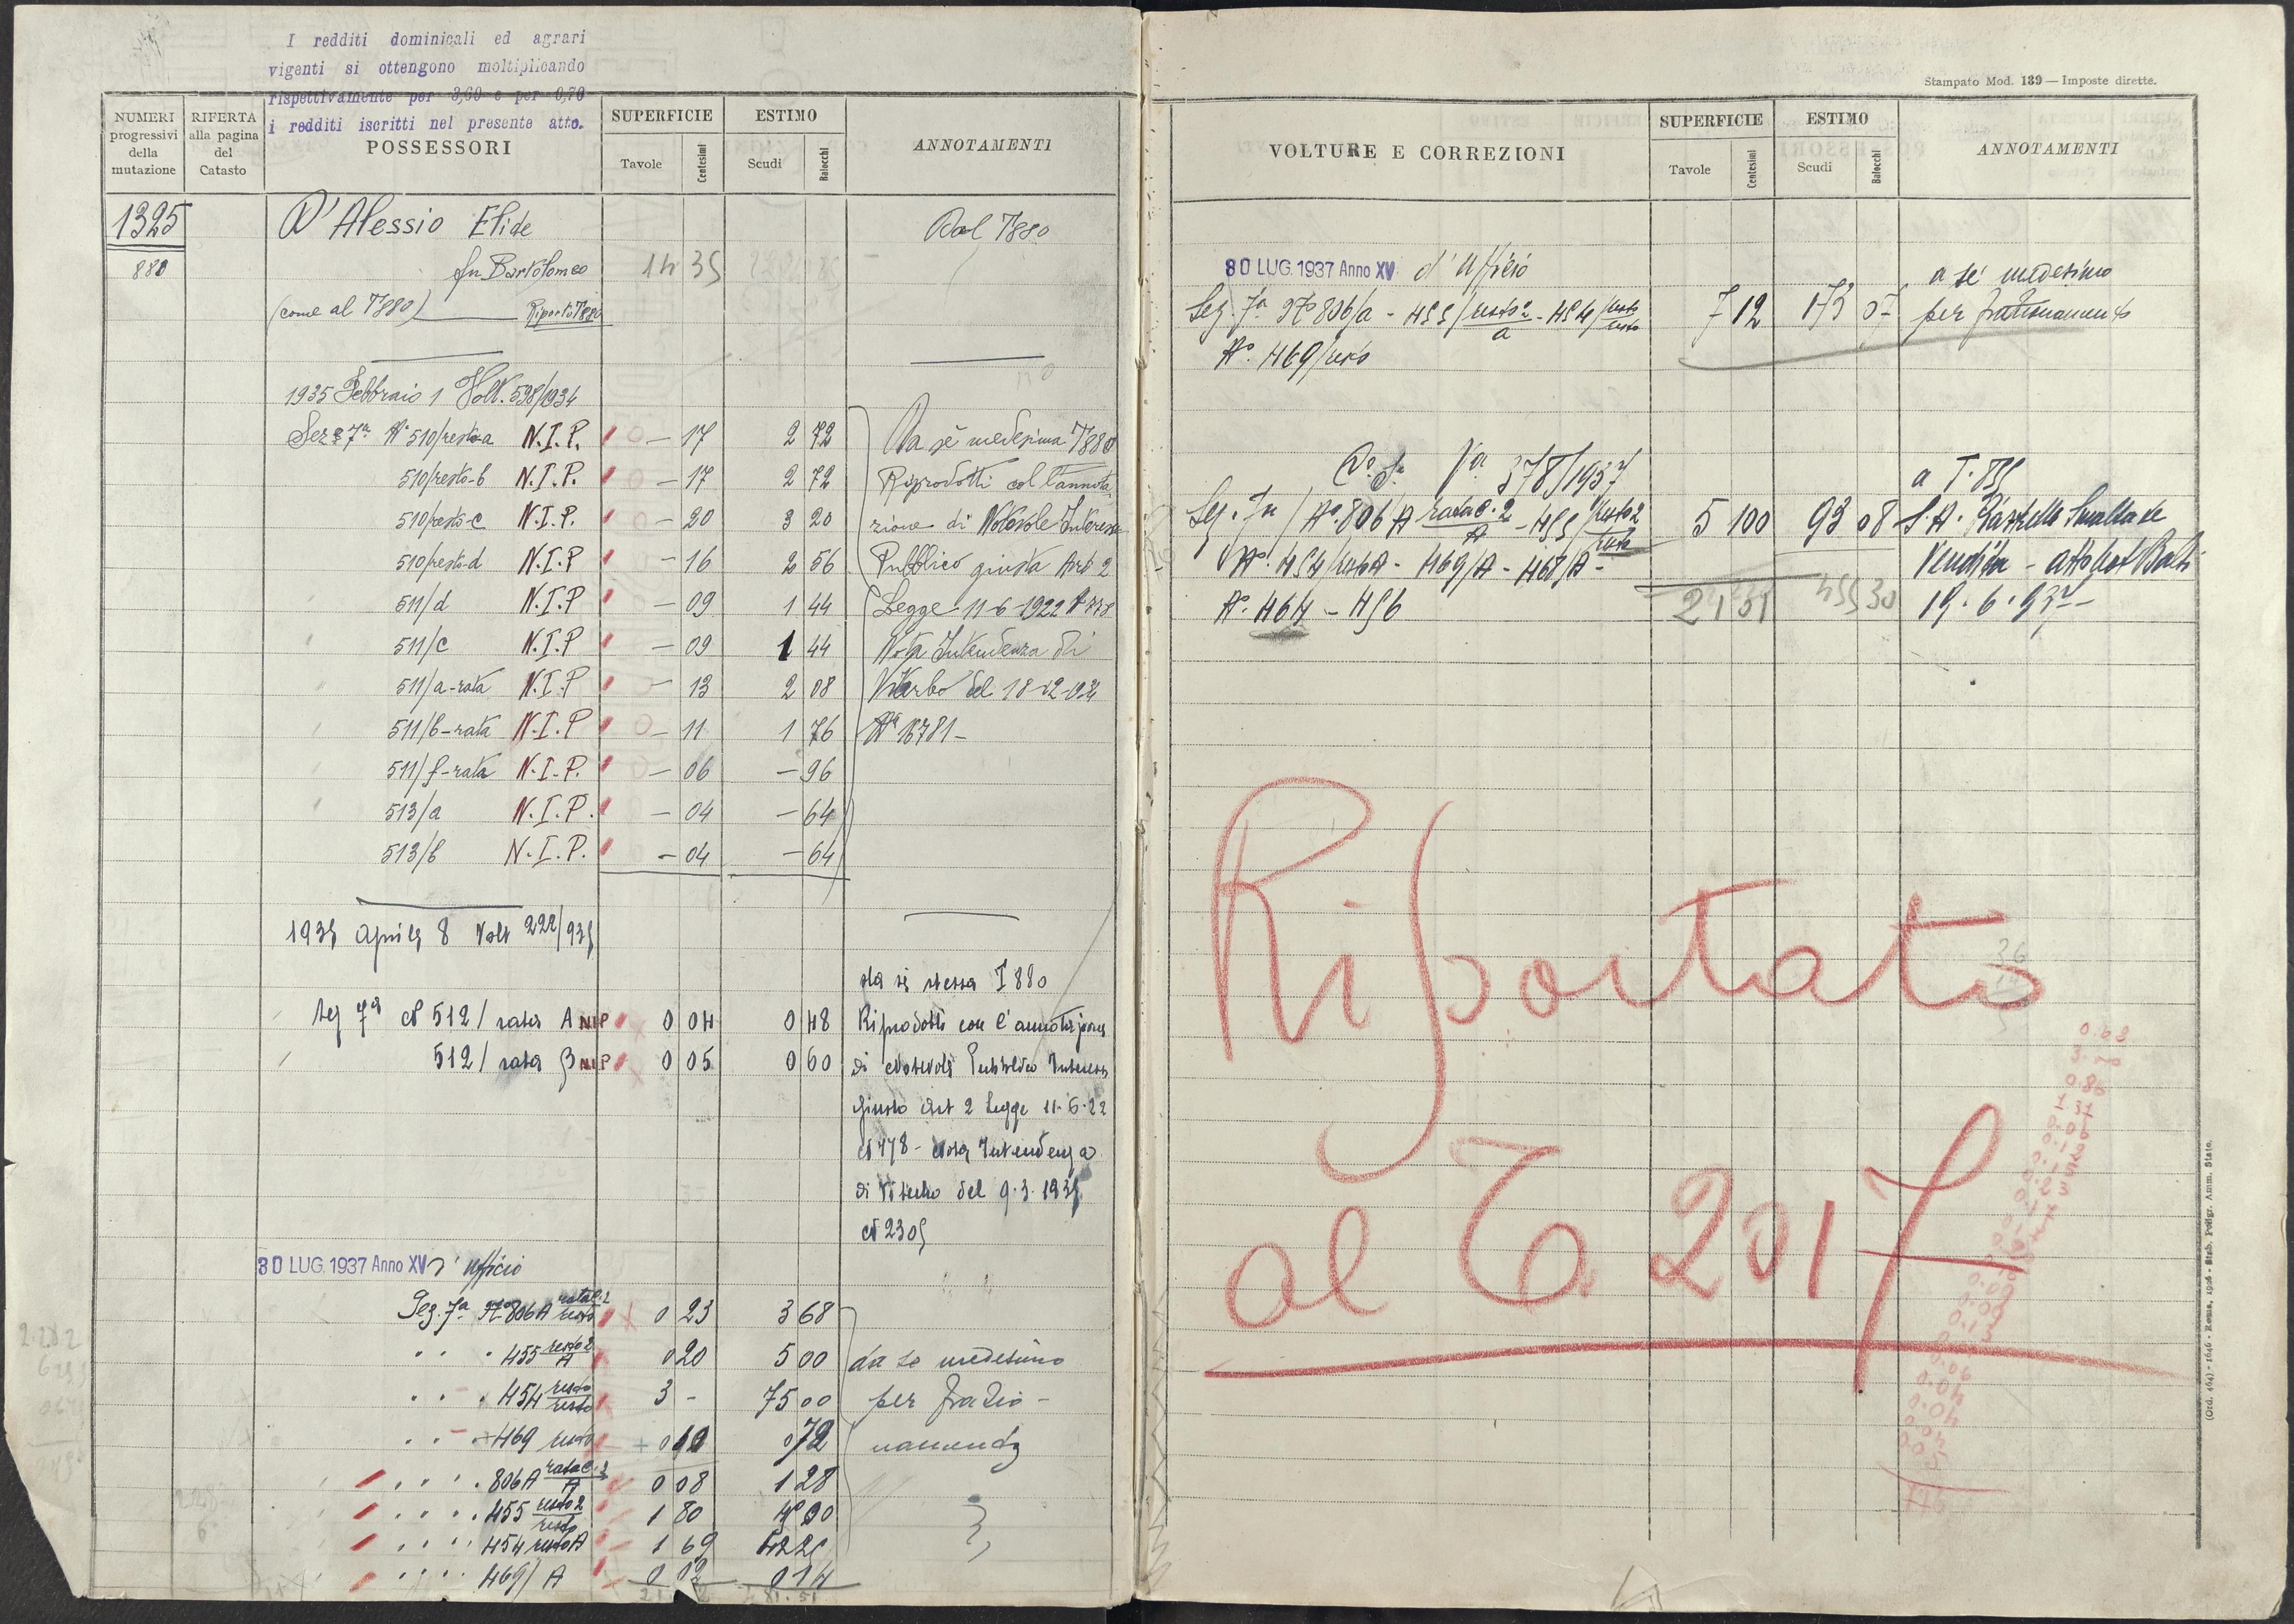 I redditi dominicali ed agrari
vigenti si ottengono moltiplicando
rispettivamente per 3,60 e per 0,70
i redditi iscritti nel presente atto.
NUMERI progressivi della mutazione
RIFERTA alla pagina del Catasto
POSSESSORI
SUPERFICIE
Tavole
Centesimi
ESTIMO
Scudi
Baiocchi
ANNOTAMENTI
1325 D'Alessio Elide Dal T880
880 fu Bartolomeo 14 35
(come al T880) Riporto T880
1935 Febbraio 1 Volt. 598/1934
Sez. 7a N° 510/resto-a N.I.P. — 17 2 72 Da sè medesima T880
510/resto-b N.I.P. — 17 2 72 Riprodotti coll'annota
510/resto-c N.I.P. — 20 3 20 zione di Notevole Interesse
510/resto-d N.I.P — 16 2 56 Pubblico giusta Art 2
511/d N.I.P — 09 1 44 Legge 11-6-1922 N 778
511/c N.I.P — 09 1 44 Nota Intendenza di
511/a-rata N.I.P — 13 2 08 Viterbo del 18-12-934
511/b-rata N.I.P — 11 1 76 N° 16781-
511/f-rata N.I.P. — 06 — 96
513/a N.I.P. — 04 — 64
513/b N.I.P. — 04 — 64
1935 Aprile 8 Volt 222/935
da se stessa T 880
Sez 7a N 512/ rata A NIP 0 04 0 48 Riprodotti con l'annotazione
512/ rata B NIP 0 05 0 60 di Notevole Pubblico Interesse
giusto Art 2 Legge 11.6.22
N 778 - Nota Intendenza
di Viterbo del 9.3.1935
N 2305
30 LUG. 1937 Anno XV d'ufficio
Sez. 7a No 806 A rata C.2 resto 0 23 3 68
455 resto 2 A 0 20 5 00 da se medesimo
454 resto resto 3 - 75 00 per frazio-
469 resto 0 72 namento
806 A rata C.2 A 0 08 1 28
455 resto 2 resto 1 80
454 resto A 1 69 42 25
469/ A 0 02 0 14
Stampato Mod. 139 — Imposte dirette.
VOLTURE E CORREZIONI
SUPERFICIE
Tavole
Centesimi
ESTIMO
Scudi
Baiocchi
ANNOTAMENTI
30 LUG. 1937 Anno XV d'ufficio a sé medesimo
Sez. 7a No 806/a - 455/resto 2 a - 454/resto resto 7 12 173 07 per frazionamento
No. 469/resto
378/1937 a T. 835
Sez. 7a No. 806 A rata C.2 A - 455 resto 2 resto 5 100 93 08 S.A.
No. 454/resto A - 469/A - 468/A - Vendita - atto
No. 464 - 456 21 51 19.6.937-
Riportato
al T. 2017
(Ord. 464) - 1646 - Roma, 1926 - Stab. Poligr. Amm. Stato.